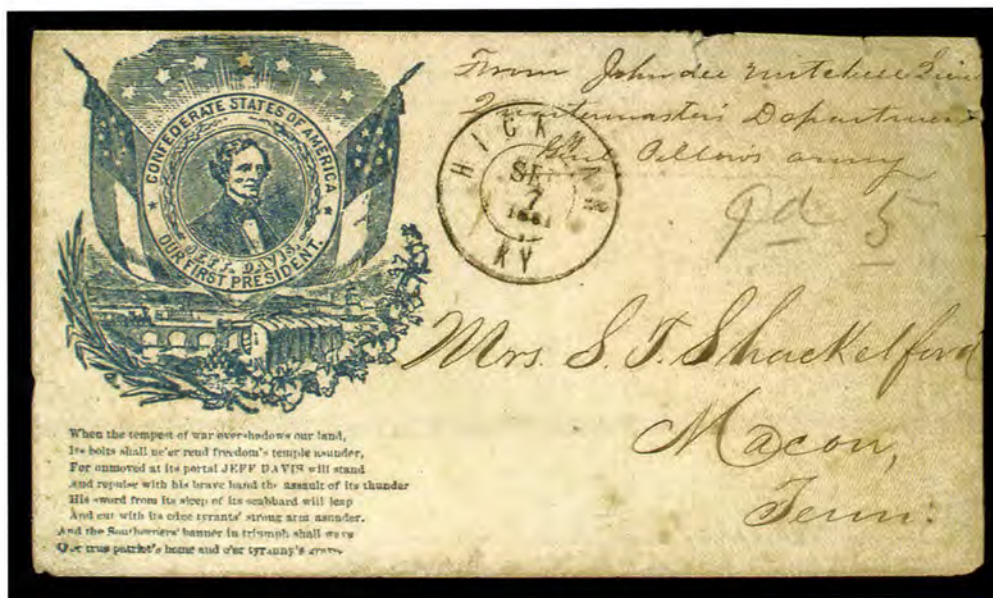 CONFEDERATE STATES OF AMERICA
JEFF. DAVIS.
OUR FIRST PRESIDENT.
From John Lee Mitchell
Quartermasters Department
Genl Pillows army
HICKMAN
SEP
7
1861
KY
Pd 5
Mrs. S. T. Shackelford
Macon,
Tenn.
When the tempest of war overshadows our land,
Its bolts shall ne'er rend freedom's temple asunder,
For unmoved at its portal JEFF DAVIS will stand
And repulse with his brave band the assault of its thunder
His sword from its sleep of its scabbard will leap
And cut with its edge tyrants' strong arm asunder.
And the Southerners' banner in triumph shall wave
Our true patriot's home and o'er tyranny's grave.